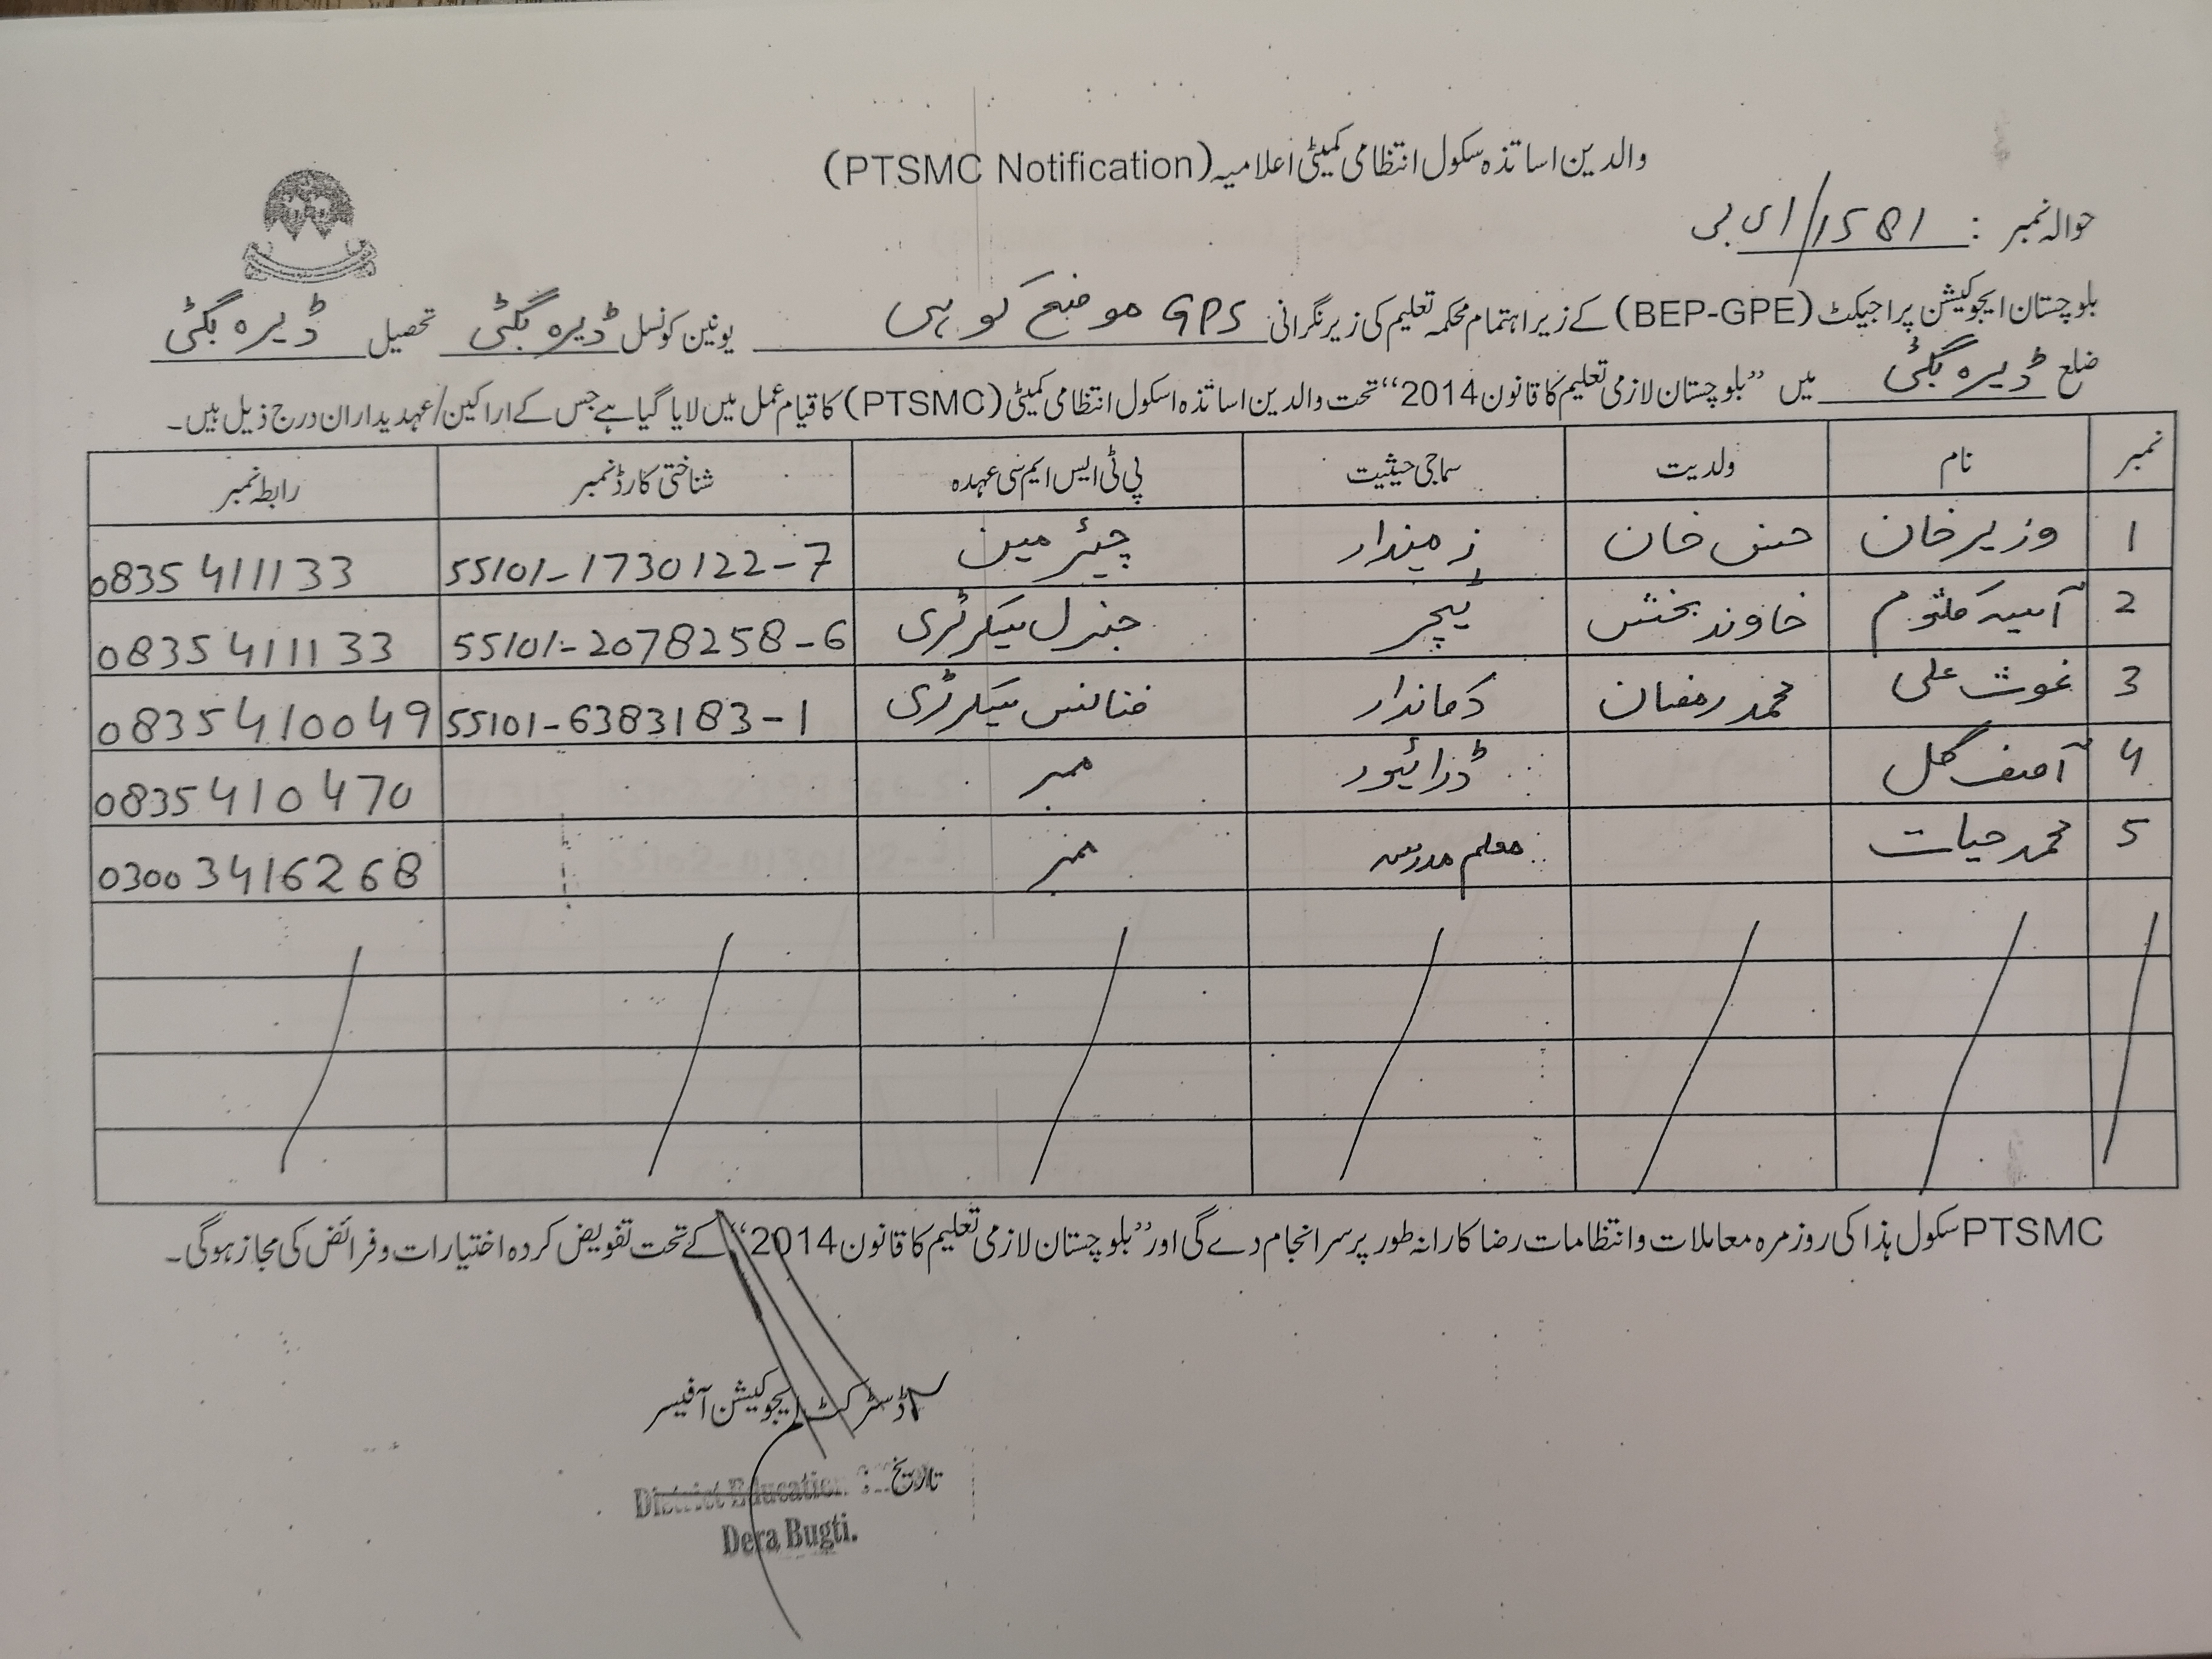 والدین اساتذہ سکول انتظامی کمیٹی اعلامیہ (PTSMC Notification)
حوالہ نمبر : 1581/ای بی
بلوچستان ایجوکیشن پراجیکٹ (BEP-GPE) کے زیر اہتمام محکمہ تعلیم کی زیر نگرانی GPS موضع کوہی یونین کونسل ڈیرہ بگٹی تحصیل ڈیرہ بگٹی
ضلع ڈیرہ بگٹی میں ”بلوچستان لازمی تعلیم کا قانون 2014“ تحت والدین اساتذہ اسکول انتظامی کمیٹی (PTSMC) کا قیام عمل میں لایا گیا ہے جس کے اراکین/عہدیداران درج ذیل ہیں۔
نمبر نام ولدیت سماجی حیثیت پی ٹی ایس ایم سی عہدہ شناختی کارڈ نمبر رابطہ نمبر
1 وزیر خان حسن خان زمیندار چیئرمین 55101-1730122-7 0835 411133
2 آسیہ کلثوم خاوند بخش ٹیچر جنرل سیکرٹری 55101-2078258-6 0835 411133
3 غوث علی محمد رمضان دکاندار فنانس سیکرٹری 55101-6383183-1 0835410049
4 آصف گل ڈرائیور ممبر 0835410470
5 محمد حیات معلم مدرسہ ممبر 0300 3416268
PTSMC سکول ہذا کی روزمرہ معاملات و انتظامات رضا کارانہ طور پر سر انجام دے گی اور ”بلوچستان لازمی تعلیم کا قانون 2014“ کے تحت تفویض کردہ اختیارات و فرائض کی مجاز ہوگی۔
ڈسٹرکٹ ایجوکیشن آفیسر
تاریخ :
District Education
Dera Bugti.